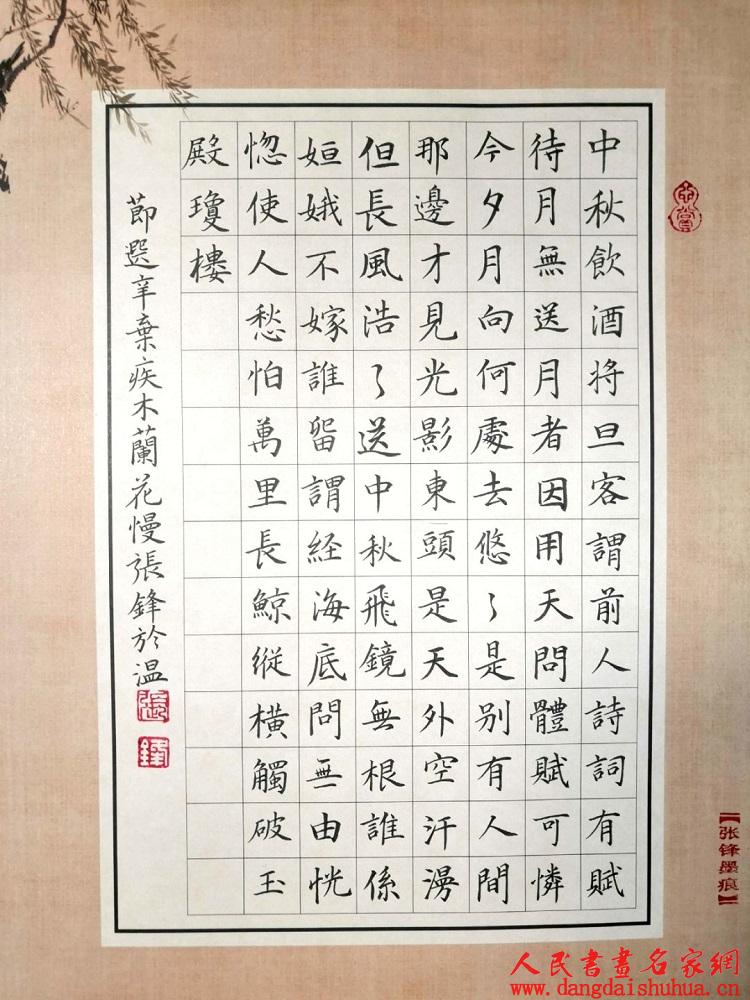 中秋飲酒将旦客謂前人詩詞有賦
待月無送月者因用天問體賦可憐
今夕月向何處去悠〻是别有人間
那邊才見光影東頭是天外空汗漫
但長風浩〻送中秋飛鏡無根誰係
姮娥不嫁誰留謂経海底問無由恍
惚使人愁怕萬里長鯨縱横觸破玉
殿瓊樓
節選辛棄疾木蘭花慢張鋒於温
張
鋒
【张锋墨痕】
人民書畫名家網
www.dangdaishuhua.cn